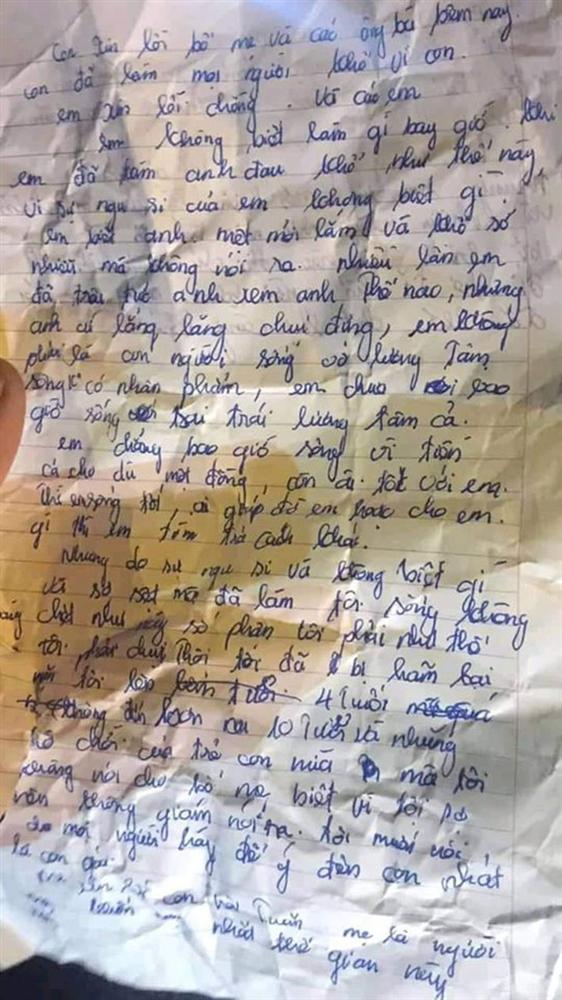 con xin lỗi bố mẹ và các ông bà bên này.
con đã làm mọi người khổ vì con.
em xin lỗi chồng. và các em
em không biết làm gì bay giờ. khi
em đã làm anh đau khổ như thế này,
vì sự ngu si của em không biết gì.
em biết anh mệt mỏi lắm và khổ sở
nhiều mà không nói ra. nhiều lần em
đã anh xem anh thế nào, nhưng
anh cứ lăng lăng chịu đừng, em không
phải là con người sống vô lương Tâm
sống có nhân phẩm, em chưa bao
giờ sống trai trái lương tâm cả.
em chẳng bao giờ sống vì tiền
cả cho dù một đồng, còn ai tốt với em.
thì em sống tốt, ai giúp đỡ em hoặc cho em.
gì thì em tìm trả cách khác.
Nhưng do sự ngu si và không biết gì
và sơ sot mà đã làm tôi sống không
chết như này số phận tôi phải như thế
tôi phải chịu thôi tôi đã bị hãm hại
tôi lên 4 Tuổi
không đến hơn 10 Tuổi và những
trò chơi của trẻ con nữa mà tôi
không nói cho bố mẹ biết vì tôi
vẫn không giám nói ra. tôi muốn nói
mọi người hãy để ý đến con nhất
là con gái.
xin lỗi con trai Tuấn mẹ là người
nhất thế gian này